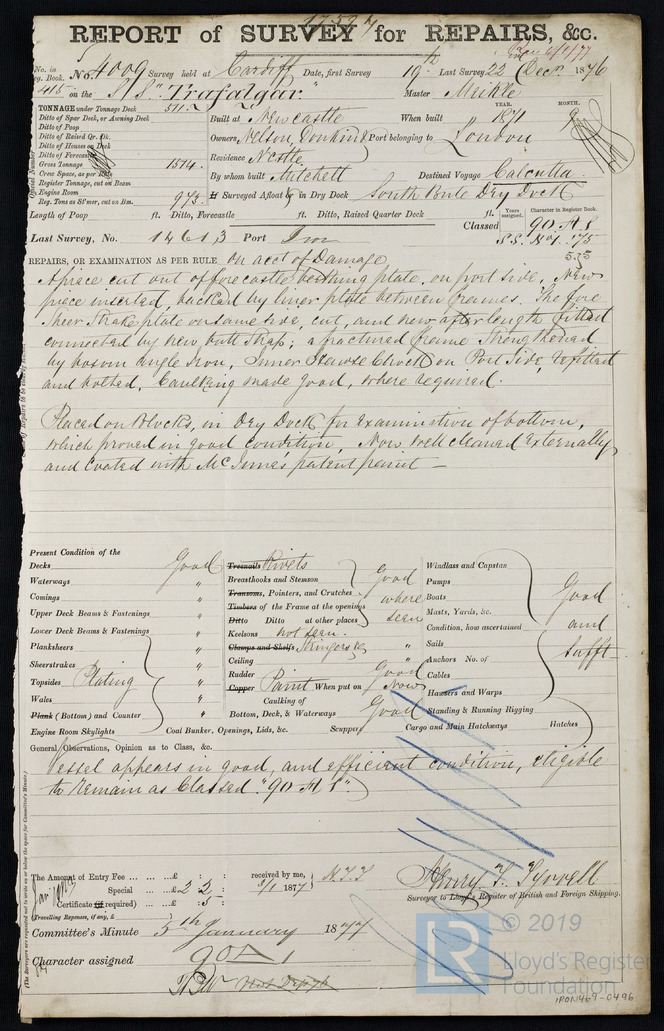 REPORT of SURVEY for REPAIRS, &c.
No. in Reg. Book. No. 4009 Survey held at Cardiff Date, first Survey 19th Last Survey 22 Decr 1876
415 on the S.S. "Trafalgar" Master Mickle
TONNAGE under Tonnage Deck
Ditto of Spar Deck, or Awning Deck
Ditto of Poop
Ditto of Raised Qr. Dk.
Ditto of Houses on Deck
Ditto of Forecastle
Gross Tonnage 1514.
Crew Space, as per Rule
Register Tonnage, cut on Beam
Engine Room
Reg. Tons as St'mer, cut on Bm. 975.
Built at Newcastle When built YEAR. 1871 MONTH. 9
Owners, Nelson, Donkin & Port belonging to London
Residence N'Castle
By whom built Mitchell Destined Voyage Calcutta
If Surveyed Afloat or in Dry Dock South Bute Dry Dock
Length of Poop ft. Ditto, Forecastle ft. Ditto, Raised Quarter Deck ft.
Years assigned. Character in Register Book.
Classed 90 A 1
Last Survey, No. 14613 Port
S.S. No 1. 75
5.75
REPAIRS, OR EXAMINATION AS PER RULE on acct of Damage
A piece cut out of forecastle plate, on port side, New
piece inserted, backed by liner plate between frames. The fore
sheer strake plate on same side, cut, and new after length fitted
connected by new butt strap; a fractured frame strengthened
by bosom angle Iron, Inner Hawse Chock on Port Side, refitted
and bolted, Caulking made good, where required.
Placed on blocks, in Dry Dock for examination of bottom,
which proved in good condition, Now well cleaned externally
and coated with McInnes patent paint —
Present Condition of the
Decks Good
Waterways "
Comings "
Upper Deck Beams & Fastenings "
Lower Deck Beams & Fastenings "
Planksheers "
Sheerstrakes "
Topsides Plating "
Wales "
Plank (Bottom) and Counter "
Engine Room Skylights Coal Bunker, Openings, Lids, &c. Scupper Cargo and Main Hatchways Hatches
Treenails Rivets
Breasthooks and Stemson Good
Transoms, Pointers, and Crutches where
Timbers of the Frame at the openings seen
Ditto Ditto at other places
Keelsons not seen.
Clamps and Shelfs Stringers &c "
Ceiling "
Rudder Good
Copper Paint When put on Now
Caulking of
Bottom, Deck, & Waterways Good
Windlass and Capstan
Pumps
Boats Good
Masts, Yards, &c.
Condition, how ascertained and
Sails
Anchors No. of sufft
Cables
Hawsers and Warps
Standing & Running Rigging
General Observations, Opinion as to Class, &c.
Vessel appears in good, and efficient condition, eligible
to remain as Classed "90 A 1"
The Amount of Entry Fee ... ... ...£ : : received by me,
Special ... ...£ 2 : 2 : 3/1 1877
Certificate (if required) ... £ : 5 :
(Travelling Expenses, if any, £
Henry T. Tyrrell
Surveyor to Lloyd's Register of British and Foreign Shipping.
Committee's Minute 5th January 1877
Character assigned 90 A 1
© 2019
Lloyd's Register
Foundation
IRON469-0496